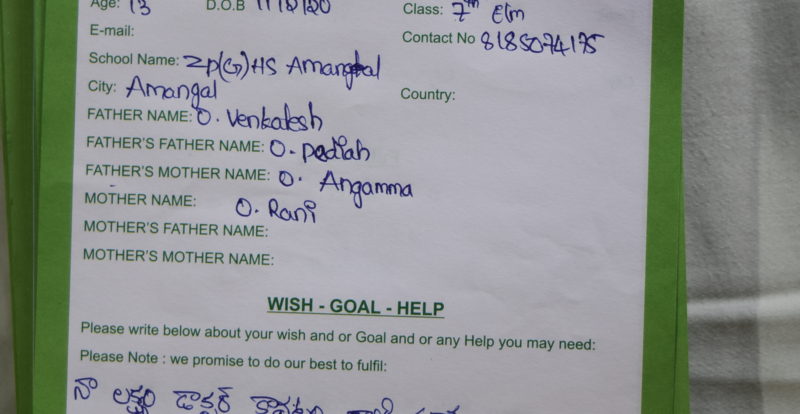 Age: 13 D.O.B Class: 7th Elm
E-mail:
Contact No 8185074175
School Name: ZP(G)HS Amangal
City: Amangal Country:
FATHER NAME: O. Venkatesh
FATHER'S FATHER NAME: O. Pediah
FATHER'S MOTHER NAME: O. Angamma
MOTHER NAME: O. Rani
MOTHER'S FATHER NAME:
MOTHER'S MOTHER NAME:
WISH - GOAL - HELP
Please write below about your wish and or Goal and or any Help you may need:
Please Note : we promise to do our best to fulfil:
నా లక్ష్యం డాక్టర్